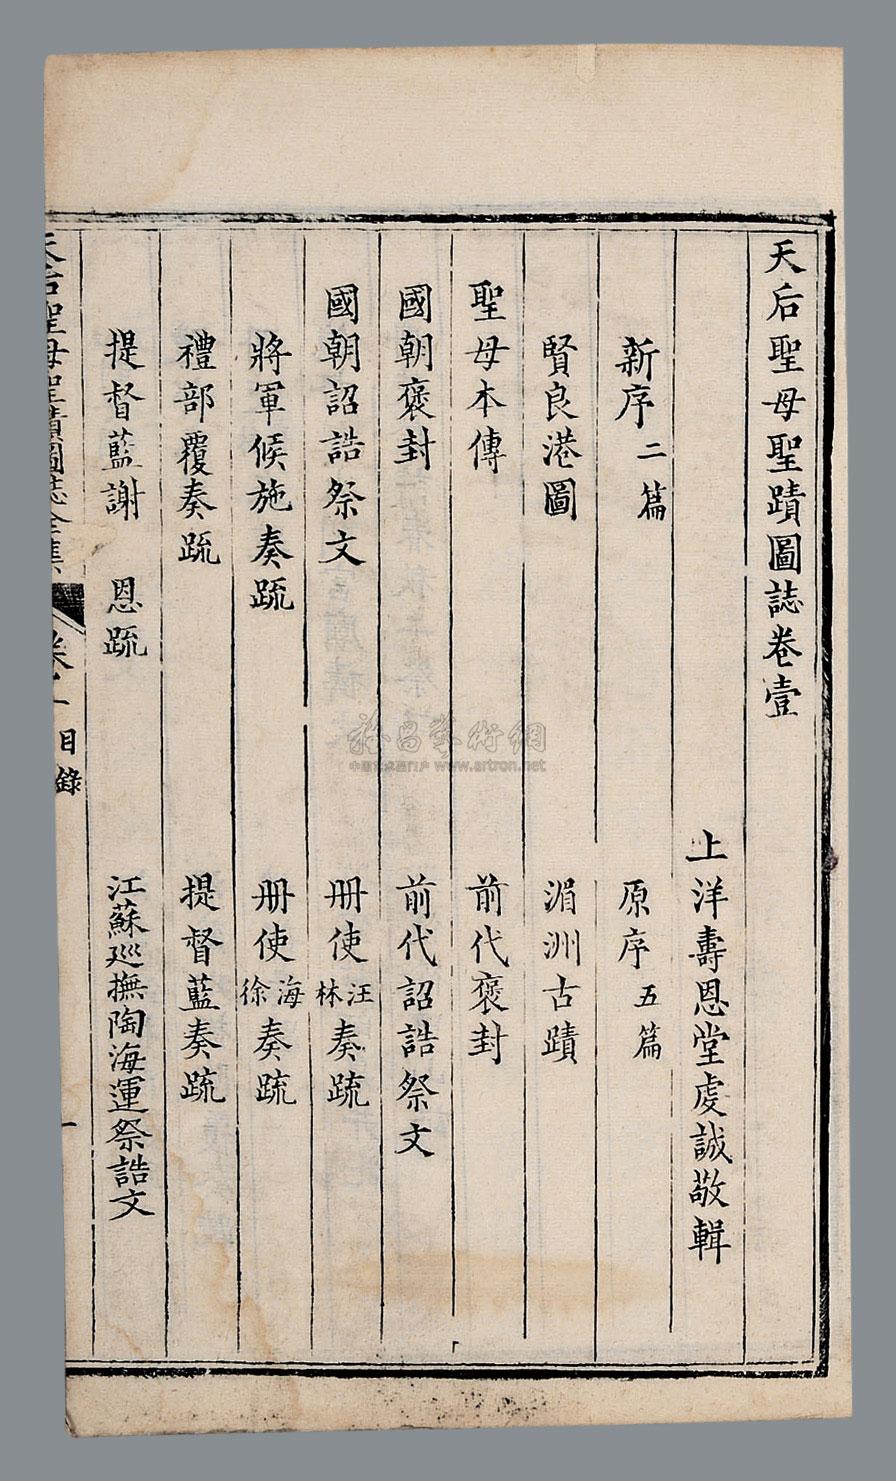 天后聖母聖蹟圖誌卷壹
上洋壽恩堂虔誠敬輯
新序二篇　原序五篇
賢良港圖　湄洲古蹟
聖母本傳　前代褒封
國朝褒封　前代詔誥祭文
國朝詔誥祭文　册使汪林奏疏
將軍候施奏疏　册使海徐奏疏
禮部覆奏疏　提督藍奏疏
提督藍謝　恩疏　江蘇廵撫陶海運祭誥文
天后聖母聖蹟圖誌全集　卷一　目錄　一
雅昌藝術網
中国艺术品门户 www.artron.net